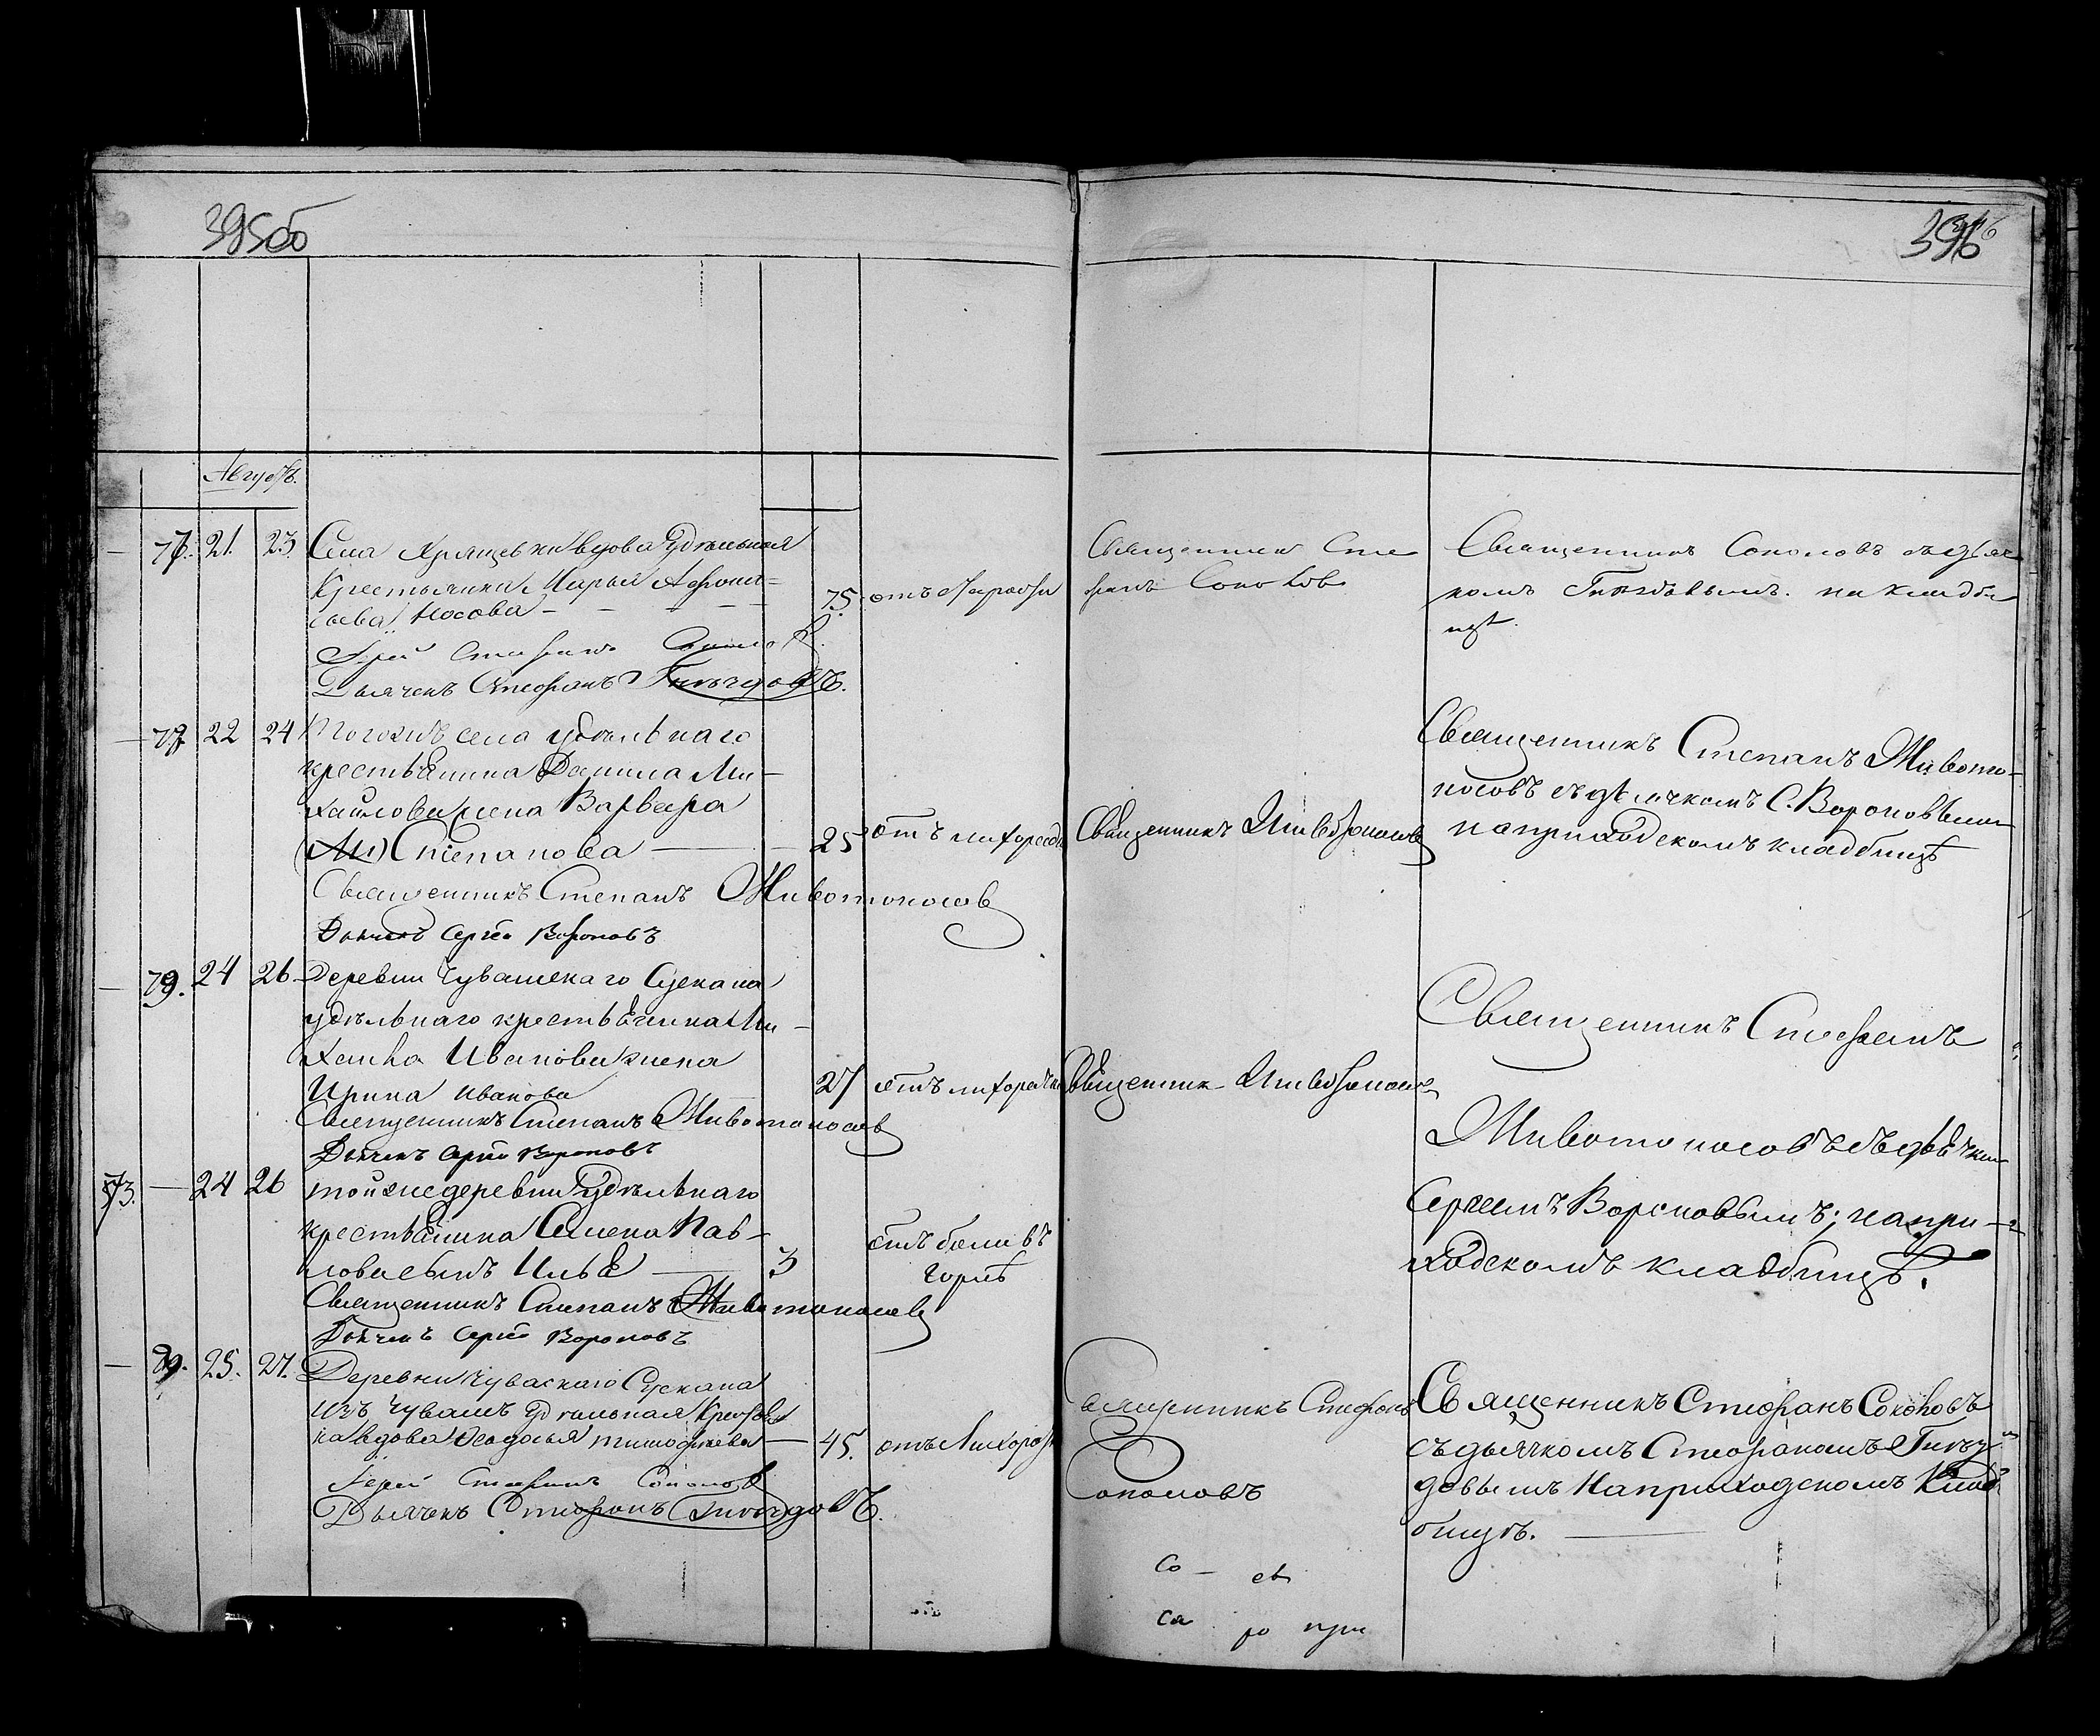 395об
396
Августъ.
77. 21. 23. Села Хрящевки вдова Удѣльная
Крестьянка Марья Афонa=
сьева Носова 75. отъ
Іерей Стефанъ Соколов
Дьячекъ Стефанъ Гнѣздовъ.
Священникъ Сте
фанъ Соколовъ
Священникъ Соколовъ съ дьяч
комъ Гнѣздовымъ. на кладби
щѣ.
22 24 Тогоже села удѣльнаго
крестьянина Данила Ми-
хайлова жена Варвара
(Ми) Степанова 25 отъ лихорадк
Священникъ Степанъ Животоносов
Дьячекъ Сергѣй Вороновъ
Священникъ Животоносовъ
Священникъ Степанъ Живото-
носовъ съ дьячкомъ С. Вороновымъ
на приходскомъ кладбищѣ
79. 24 26. Деревни Чувашскаго Сускана
удѣльнаго крестьянина Ми-
хаила Иванова жена
Ирина Иванова 27 отъ лихорадки
Священникъ Степанъ Животоносов
Дьячекъ Сергѣй Вороновъ
Священник Животоносовъ
Священникъ Стефанъ
Животоносовъ съ дьячком
Сергеемъ Вороновымъ; на при-
ходскомъ кладбищѣ.
73. 24 26 той же деревни Удѣльнаго
крестьянина Семена Пав-
лова сынъ Илья 3 отъ боли въ
горлѣ
Священникъ Степанъ Животоносовъ
Дьячекъ Сергѣй Вороновъ
25. 27. Деревни Чуваскаго Сускана
изъ Чувашъ Удѣльная Крестьян
ка вдова Феодосья Тимофеева 45. отъ Лихорадк
Іерей Стефанъ Соколовъ
Дьячекъ Стефанъ Гнѣздовъ.
Священникъ Стефанъ
Соколовъ
Священникъ Стефанъ Соколовъ
съ дьячкомъ Стефаномъ Гнѣз
довымъ На приходскомъ Клад
бищѣ.
со - св
ся ро при